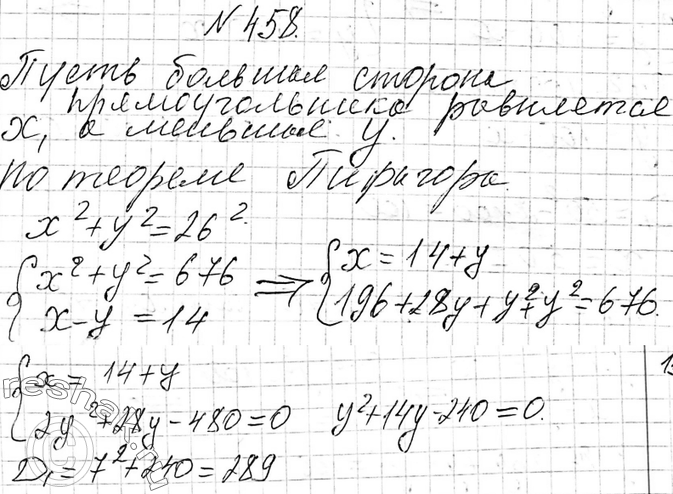 № 458.
Пусть большая сторона
прямоугольника равняется
x, а меньшая y.
По теореме Пифагора
x²+y²=26².
{x²+y²=676 ⇒ {x=14+y
{x-y=14 {196+28y+y²+y²=676.
{x=14+y
{2y²+28y-480=0 y²+14y-240=0.
D₁=7²+240=289
reshak.ru